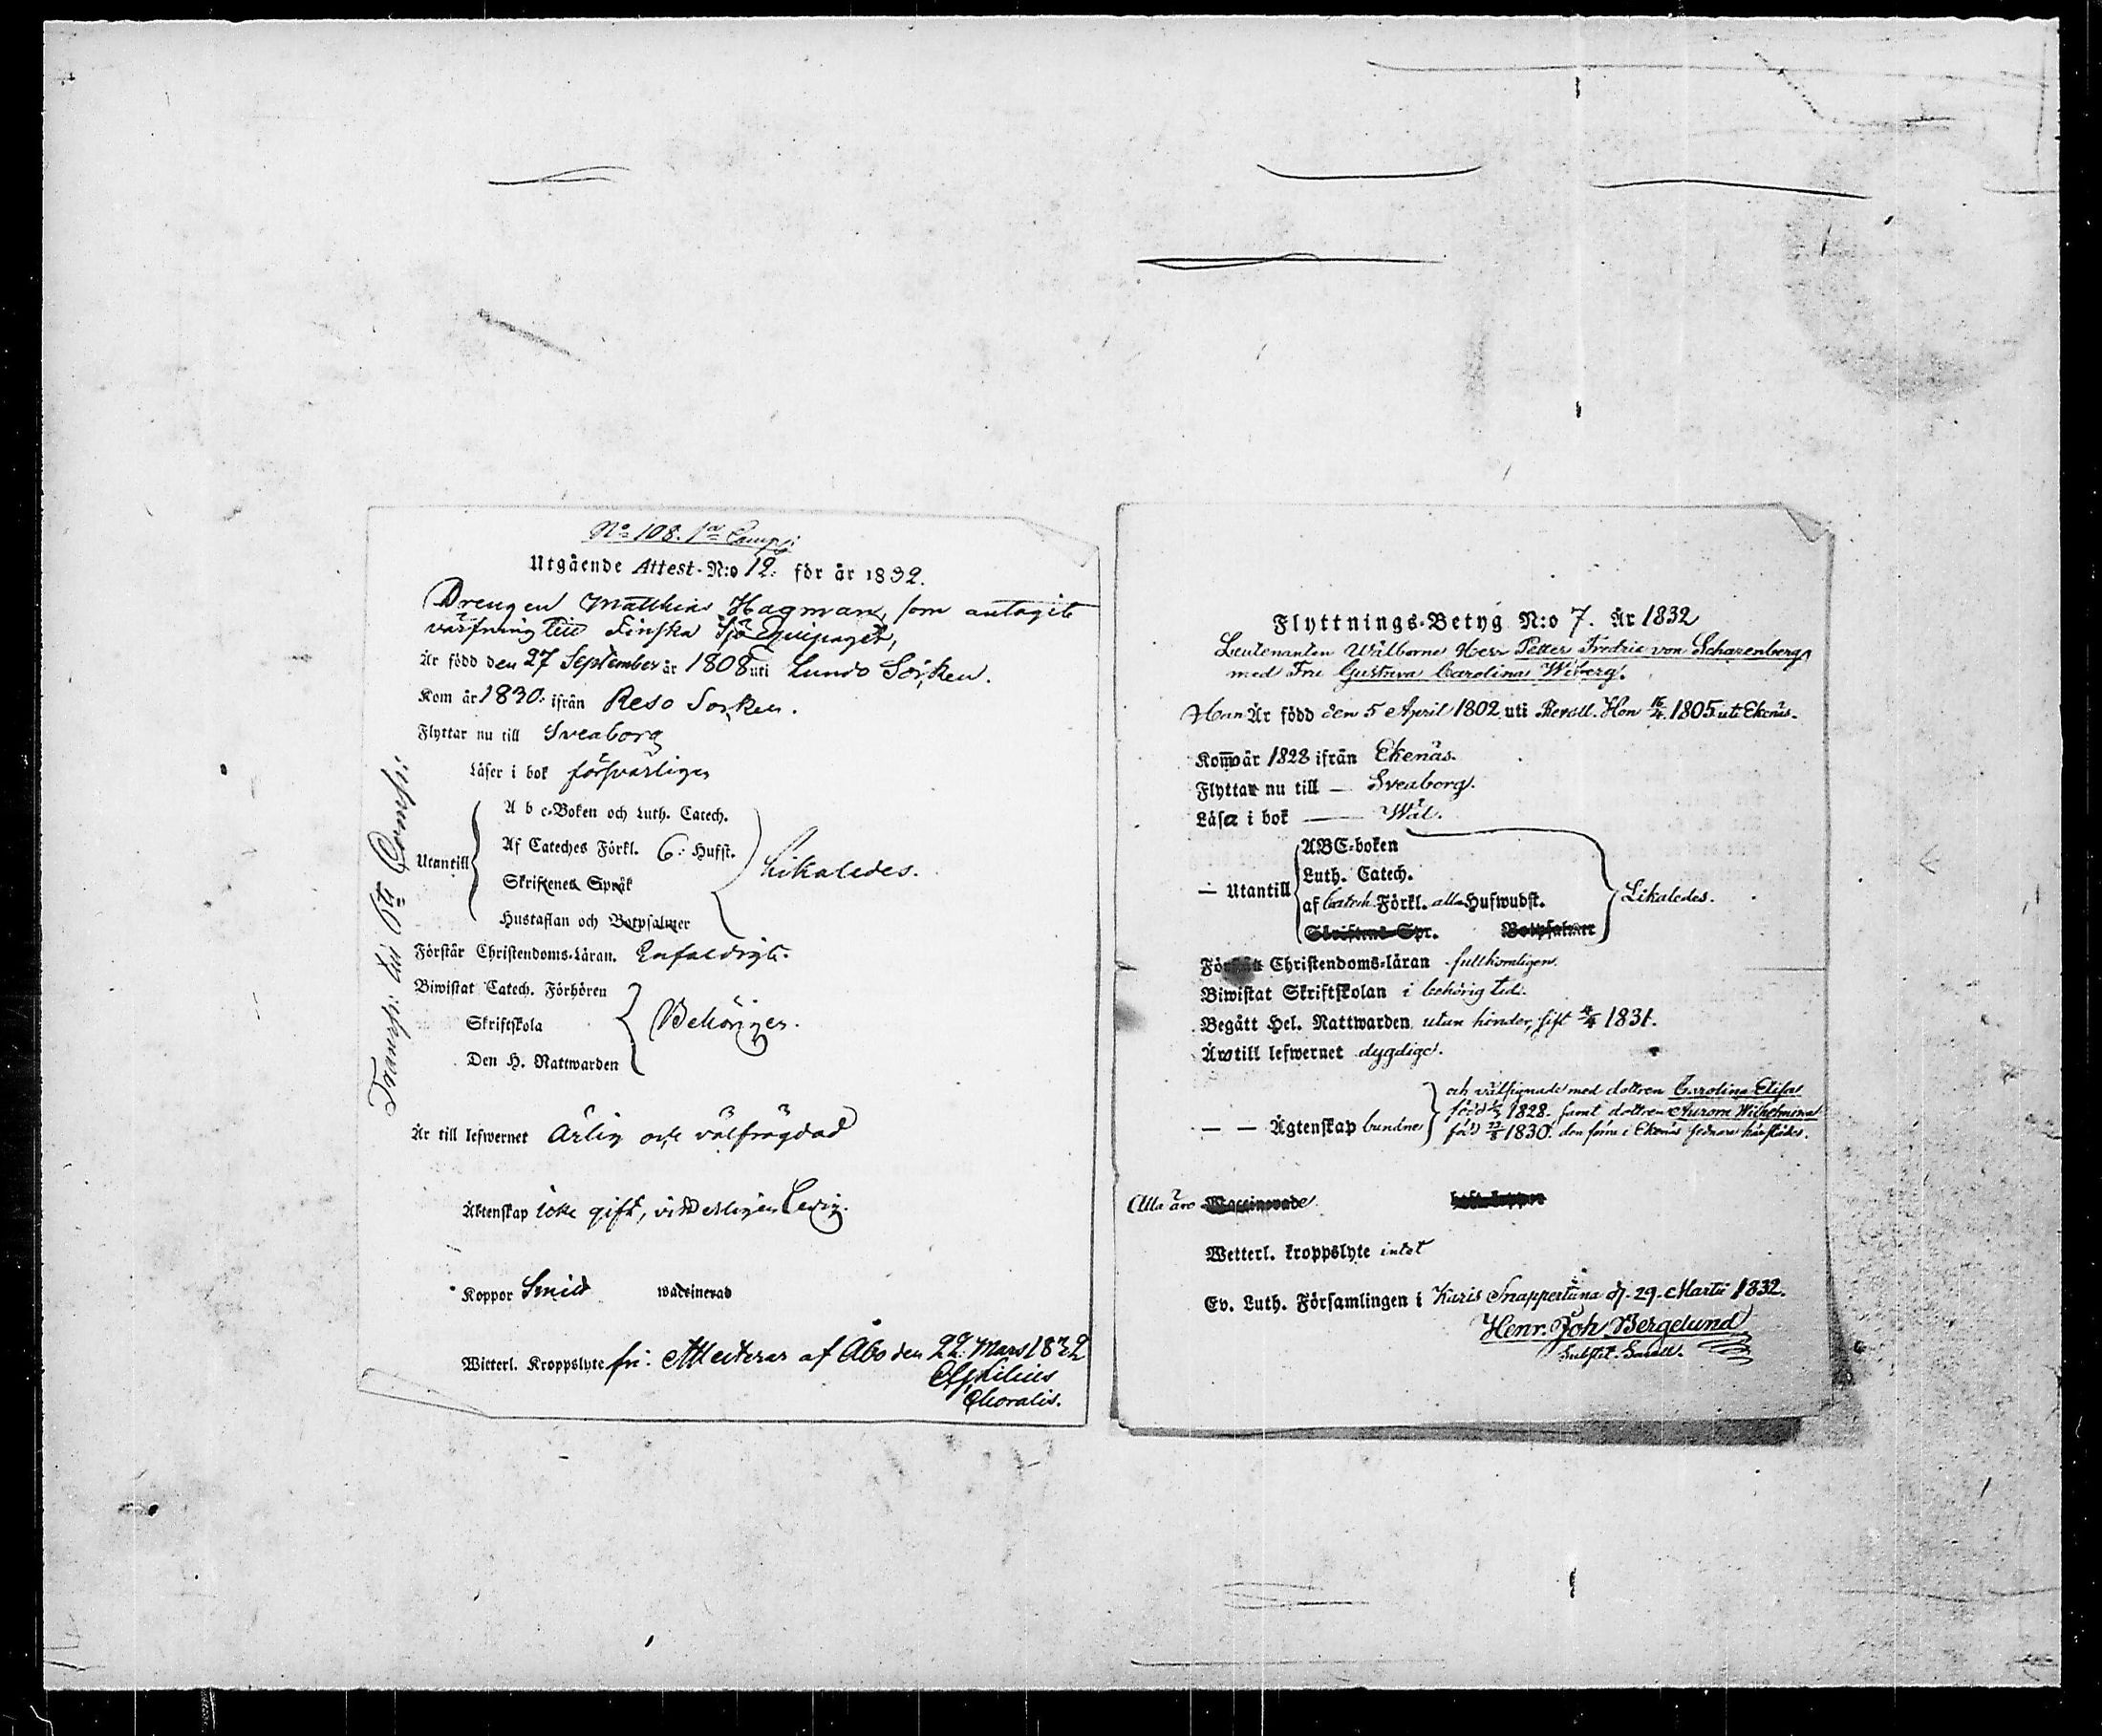 No 108. 1a Comp:
Utgående Attest-N:o 12. för år 1832.
Drengen Matthias Hagman, som antagit
värfning till Finska Sjö Equipaget,
Är född den 27 September år 1808 uti Lundo Socken.
Kom år 1830. ifrån Reso Socken.
Flyttar nu till Sveaborg
Läser i bok försvarligen
Utantill
A b c-Boken och Luth. Catech.
Af Cateches Förkl. 6: Hufst.
Skriftenes Språk
Hustaflan och Botpsalmer
Likaledes.
Förstår Christendoms-Läran. Enfaldigt.
Biwistat Catech. Förhören
Skriftskola
Den H. Nattwarden
Behörigen.
Är till lefwernet ärlig och välfrägdad
Äktenskap icke gift, vitterligen Ledig.
Koppor Smitt waccinerad
Witterl. Kroppslyte fri: Attesterar af Åbo den 22. Mars 1832
Choralis.
Transp: till 6te Comp:
Flyttnings-Betyg N:o 7. År 1832
Leutenanten Wälborne Herr Petter Fredric von Scharenberg
med Fru Gustava Carolina Wiberg.
Han Är född den 5 April 1802 uti Revall. Hon 16/4 1805 uti Ekenäs.
Kommo år 1828 ifrån Ekenäs.
Flyttar nu till — Sveaborg.
Läsa i bok — Wäl.
— Utantill
ABC-boken
Luth. Catech.
af Catech. Förkl. alla Hufwudst.
Skriftens Spr. Botpsalmer
Likaledes.
Förstått Christendoms-läran fullkomligen.
Biwistat Skriftskolan i behörig tid.
Begått Hel. Nattwarden utan hinder, sist 4/4 1831.
Äro till lefwernet dygdige.
— — Ägtenskap bundne
och välsignade med dottren Carolina Elisa
född 1828. samt dottren Aurora Wilhelmina
född 23/8 1830. den förra i Ekenäs sednare härstädes.
Alla äro Waccinerade.
Wetterl. kroppslyte intet
Ev. Luth. Församlingen i Karis Snappertuna d. 29. Martii 1832.
Henr. Joh Bergelund